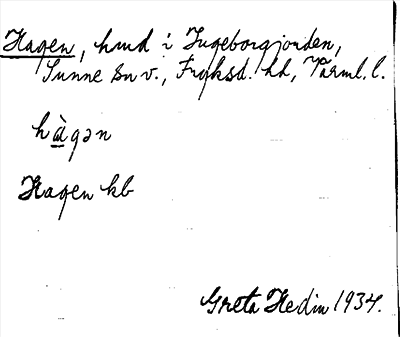 Hagen, hmd i Ingeborgjorden,
Sunne sn v., Fryksd. hd, Värml. l.
hàgən
Hagen kb
Greta Hedin 1934.